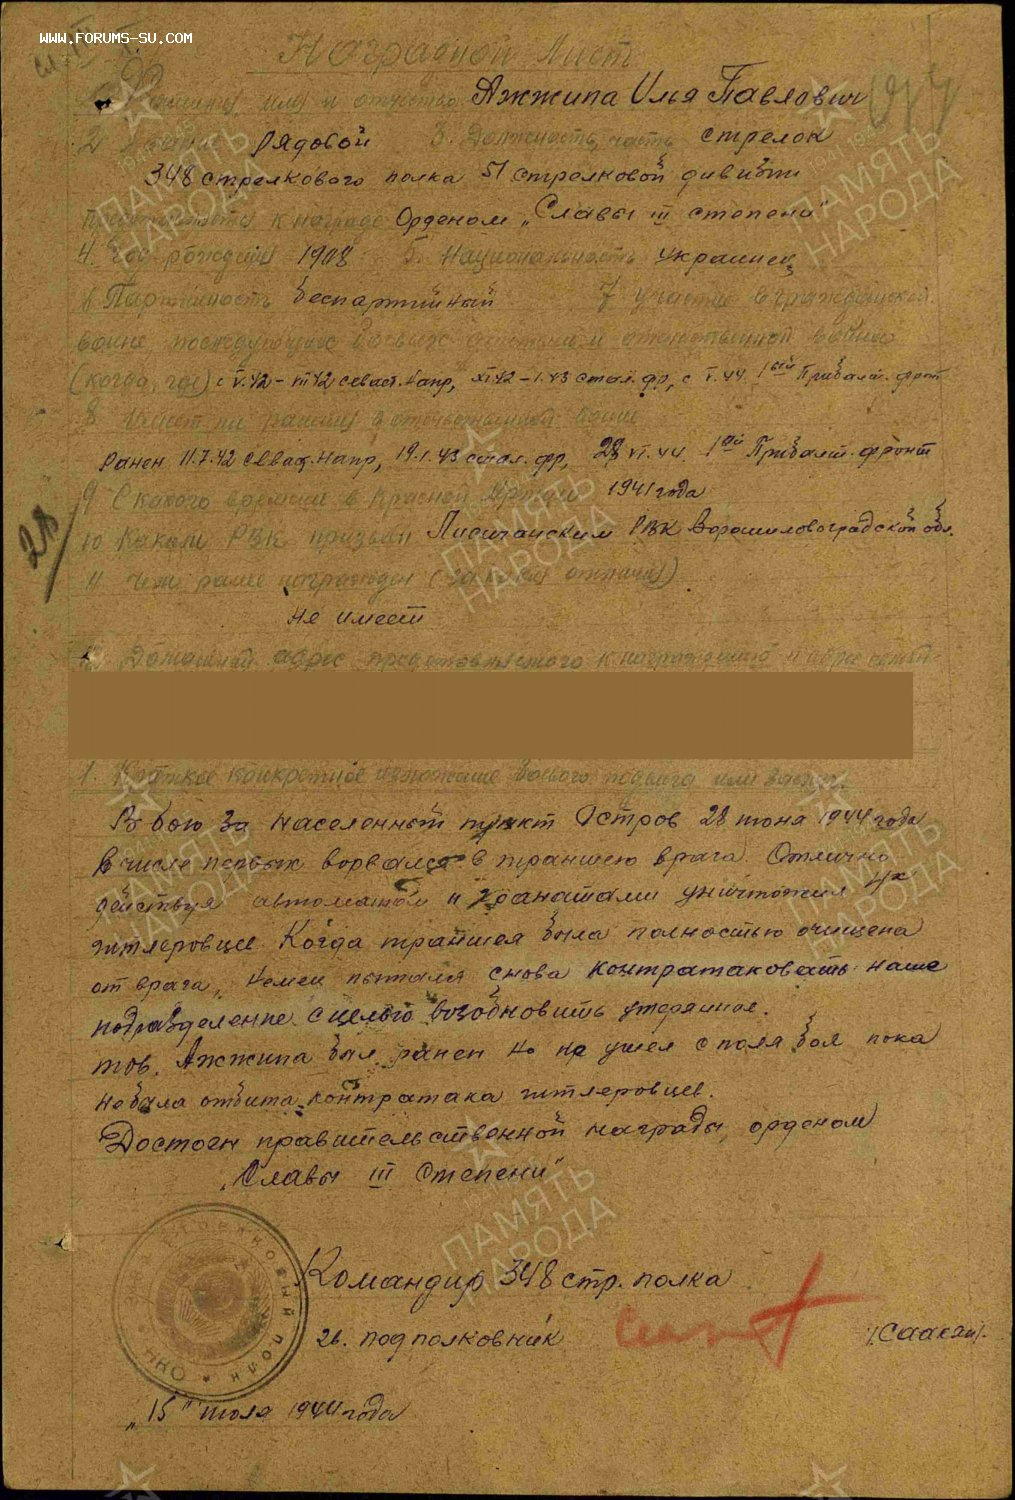 WWW.FORUMS-SU.COM
Наградной Лист
имя и отчество Ажжипа Илья Павлович
2. Звание рядовой 3. Должность, часть стрелок
348 стрелкового полка 51 стрелковой дивизии
Представляется к награде Орденом „Славы III степени"
4. Год рождения 1908 5. Национальность украинец
6 Партийность беспартийный 7 участие в гражданской
войне, последующих боевых действиях и отечественной войне
(когда, где) с V.42 - VII 42 Севаст. напр, XI.42 - 1.43 Стал. фр, с V.44 1ый Прибалт. фронт
8 Имеет ли ранения в отечественной войне
Ранен 11.7.42 Севаст. напр, 19.1.43 стал. фр, 28 VI.44 1ый Прибалт. фронт
9 С какого времени в Красной Армии 1941 года
10 Каким РВК призван Лисичанским РВК Ворошиловоградской обл.
28
11 Чем ранее награжден (за какие отличия)
Не имеет
12 Домашний адрес представляемого к награждению и адрес семьи
1. Краткое конкретное изложение боевого подвига или заслуг.
В бою за населенный пункт Остров 28 июня 1944 года
в числе первых ворвался в траншею врага. Отлично
действуя автоматом и гранатами уничтожил 4х
гитлеровцев. Когда траншея была полностью очищена
от врага, немец пытался снова контратаковать наше
подразделение с целью возобновить утерянное.
тов. Ажжипа был ранен но не ушел с поля боя пока
не была отбита контратака гитлеровцев.
Достоен правительственной награды, орденом
„Славы III степени"
Командир 348 стр. полка
гв. подполковник /Саакян/.
„15" июля 1944 года
ПАМЯТЬ НАРОДА
ПАМЯТЬ НАРОДА
ПАМЯТЬ НАРОДА
ПАМЯТЬ НАРОДА
ПАМЯТЬ НАРОДА
ПАМЯТЬ НАРОДА